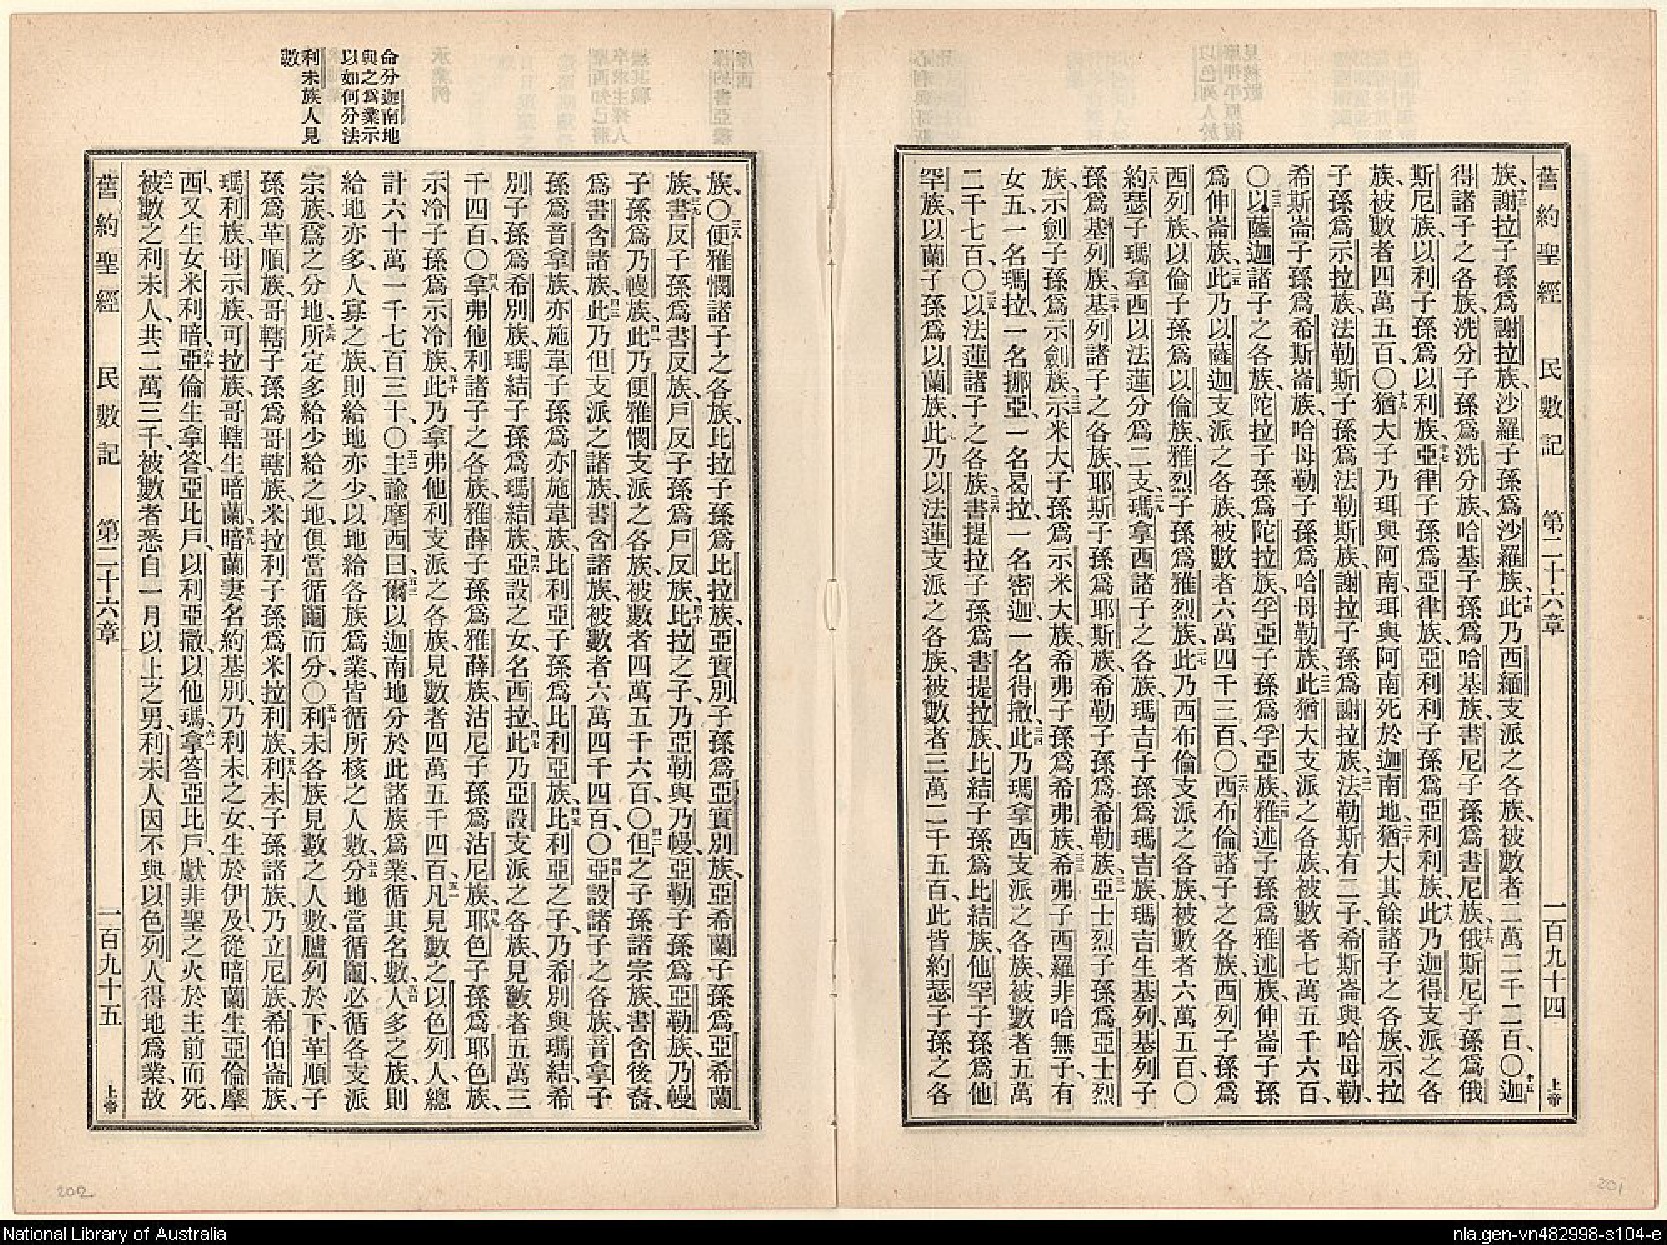 舊約聖經 民數記 第二十六章 一百九十四 上帝
族、謝拉子孫爲謝拉族、沙羅子孫爲沙羅族、此乃西緬支派之各族、被數者二萬二千二百、〇迦
得諸子之各族、洗分子孫爲洗分族、哈基子孫爲哈基族、書尼子孫爲書尼族、俄斯尼子孫爲俄
斯尼族、以利子孫爲以利族、亞律子孫爲亞律族、亞利利子孫爲亞利利族、此乃迦得支派之各
族、被數者四萬五百、〇猶大子乃珥與阿南、珥與阿南死於迦南地、猶大其餘諸子之各族、示拉
子孫爲示拉族、法勒斯子孫爲法勒斯族、謝拉子孫爲謝拉族、法勒斯有二子、希斯崙與哈母勒、
希斯崙子孫爲希斯崙族、哈母勒子孫爲哈母勒族、此猶大支派之各族、被數者七萬五千六百、
〇以薩迦諸子之各族、陀拉子孫爲陀拉族、孚亞子孫爲孚亞族、雅述子孫爲雅述族、伸崙子孫
爲伸崙族、此乃以薩迦支派之各族、被數者六萬四千三百、〇西布倫諸子之各族、西列子孫爲
西列族、以倫子孫爲以倫族、雅烈子孫爲雅烈族、此乃西布倫支派之各族、被數者六萬五百、〇
約瑟子瑪拿西以法蓮分爲二支、瑪拿西諸子之各族、瑪吉子孫爲瑪吉族、瑪吉生基列、基列子
孫爲基列族、基列諸子之各族、耶斯子孫爲耶斯族、希勒子孫爲希勒族、亞士烈子孫爲亞士烈
族、示劍子孫爲示劍族、示米大子孫爲示米大族、希弗子孫爲希弗族、希弗子西羅非哈無子、有
女五、一名瑪拉、一名挪亞、一名曷拉、一名密迦、一名得撒、此乃瑪拿西支派之各族、被數者五萬
二千七百、〇以法蓮諸子之各族、書提拉子孫爲書提拉族、比結子孫爲比結族、他罕子孫爲他
罕族、以蘭子孫爲以蘭族、此乃以法蓮支派之各族、被數者三萬二千五百、此皆約瑟子孫之各
族、〇便雅憫諸子之各族、比拉子孫爲比拉族、亞實別子孫爲亞實別族、亞希蘭子孫爲亞希蘭
族、書反子孫爲書反族、戶反子孫爲戶反族、比拉之子、乃亞勒與乃幔、亞勒子孫爲亞勒族、乃幔
子孫爲乃幔族、此乃便雅憫支派之各族、被數者四萬五千六百、〇但之子孫諸宗族、書含後裔、
爲書含諸族、此乃但支派之諸族、書含諸族、被數者六萬四千四百、〇亞設諸子之各族、音拿子
孫爲音拿族、亦施韋子孫爲亦施韋族、比利亞子孫爲比利亞族、比利亞之子、乃希別與瑪結、希
別子孫爲希別族、瑪結子孫爲瑪結族、亞設之女、名西拉、此乃亞設支派之各族、見數者五萬三
千四百、〇拿弗他利諸子之各族、雅薛子孫爲雅薛族、沽尼子孫爲沽尼族、耶色子孫爲耶色族、
示冷子孫爲示冷族、此乃拿弗他利支派之各族、見數者四萬五千四百、凡見數之以色列人、總
計六十萬一千七百三十、〇主諭摩西曰、爾以迦南地分於此諸族爲業、循其名數、人多之族、則
給地亦多、人寡之族、則給地亦少、以地給各族爲業、皆循所核之人數、分地當循鬮、必循各支派
宗族、爲之分地、所定多給少給之地、俱當循鬮而分、〇利未各族見數之人數、臚列於下、革順子
孫爲革順族、哥轄子孫爲哥轄族、米拉利子孫爲米拉利族、利未子孫諸族、乃立尼族、希伯崙族、
瑪利族、母示族、可拉族、哥轄生暗蘭、暗蘭妻名約基別、乃利未之女、生於伊及、從暗蘭生亞倫摩
西、又生女米利暗、亞倫生拿答、亞比戶、以利亞撒、以他瑪、拿答亞比戶、獻非聖之火於主前而死、
被數之利未人、共二萬三千、被數者悉自一月以上之男、利未人因不與以色列人得地爲業、故
命分迦南地
與之爲業示
以如何分法
利未族人見
數
舊約聖經 民數記 第二十六章 一百九十五 上帝
202
201
National Library of Australia
nla.gen-vn482998-s104-e